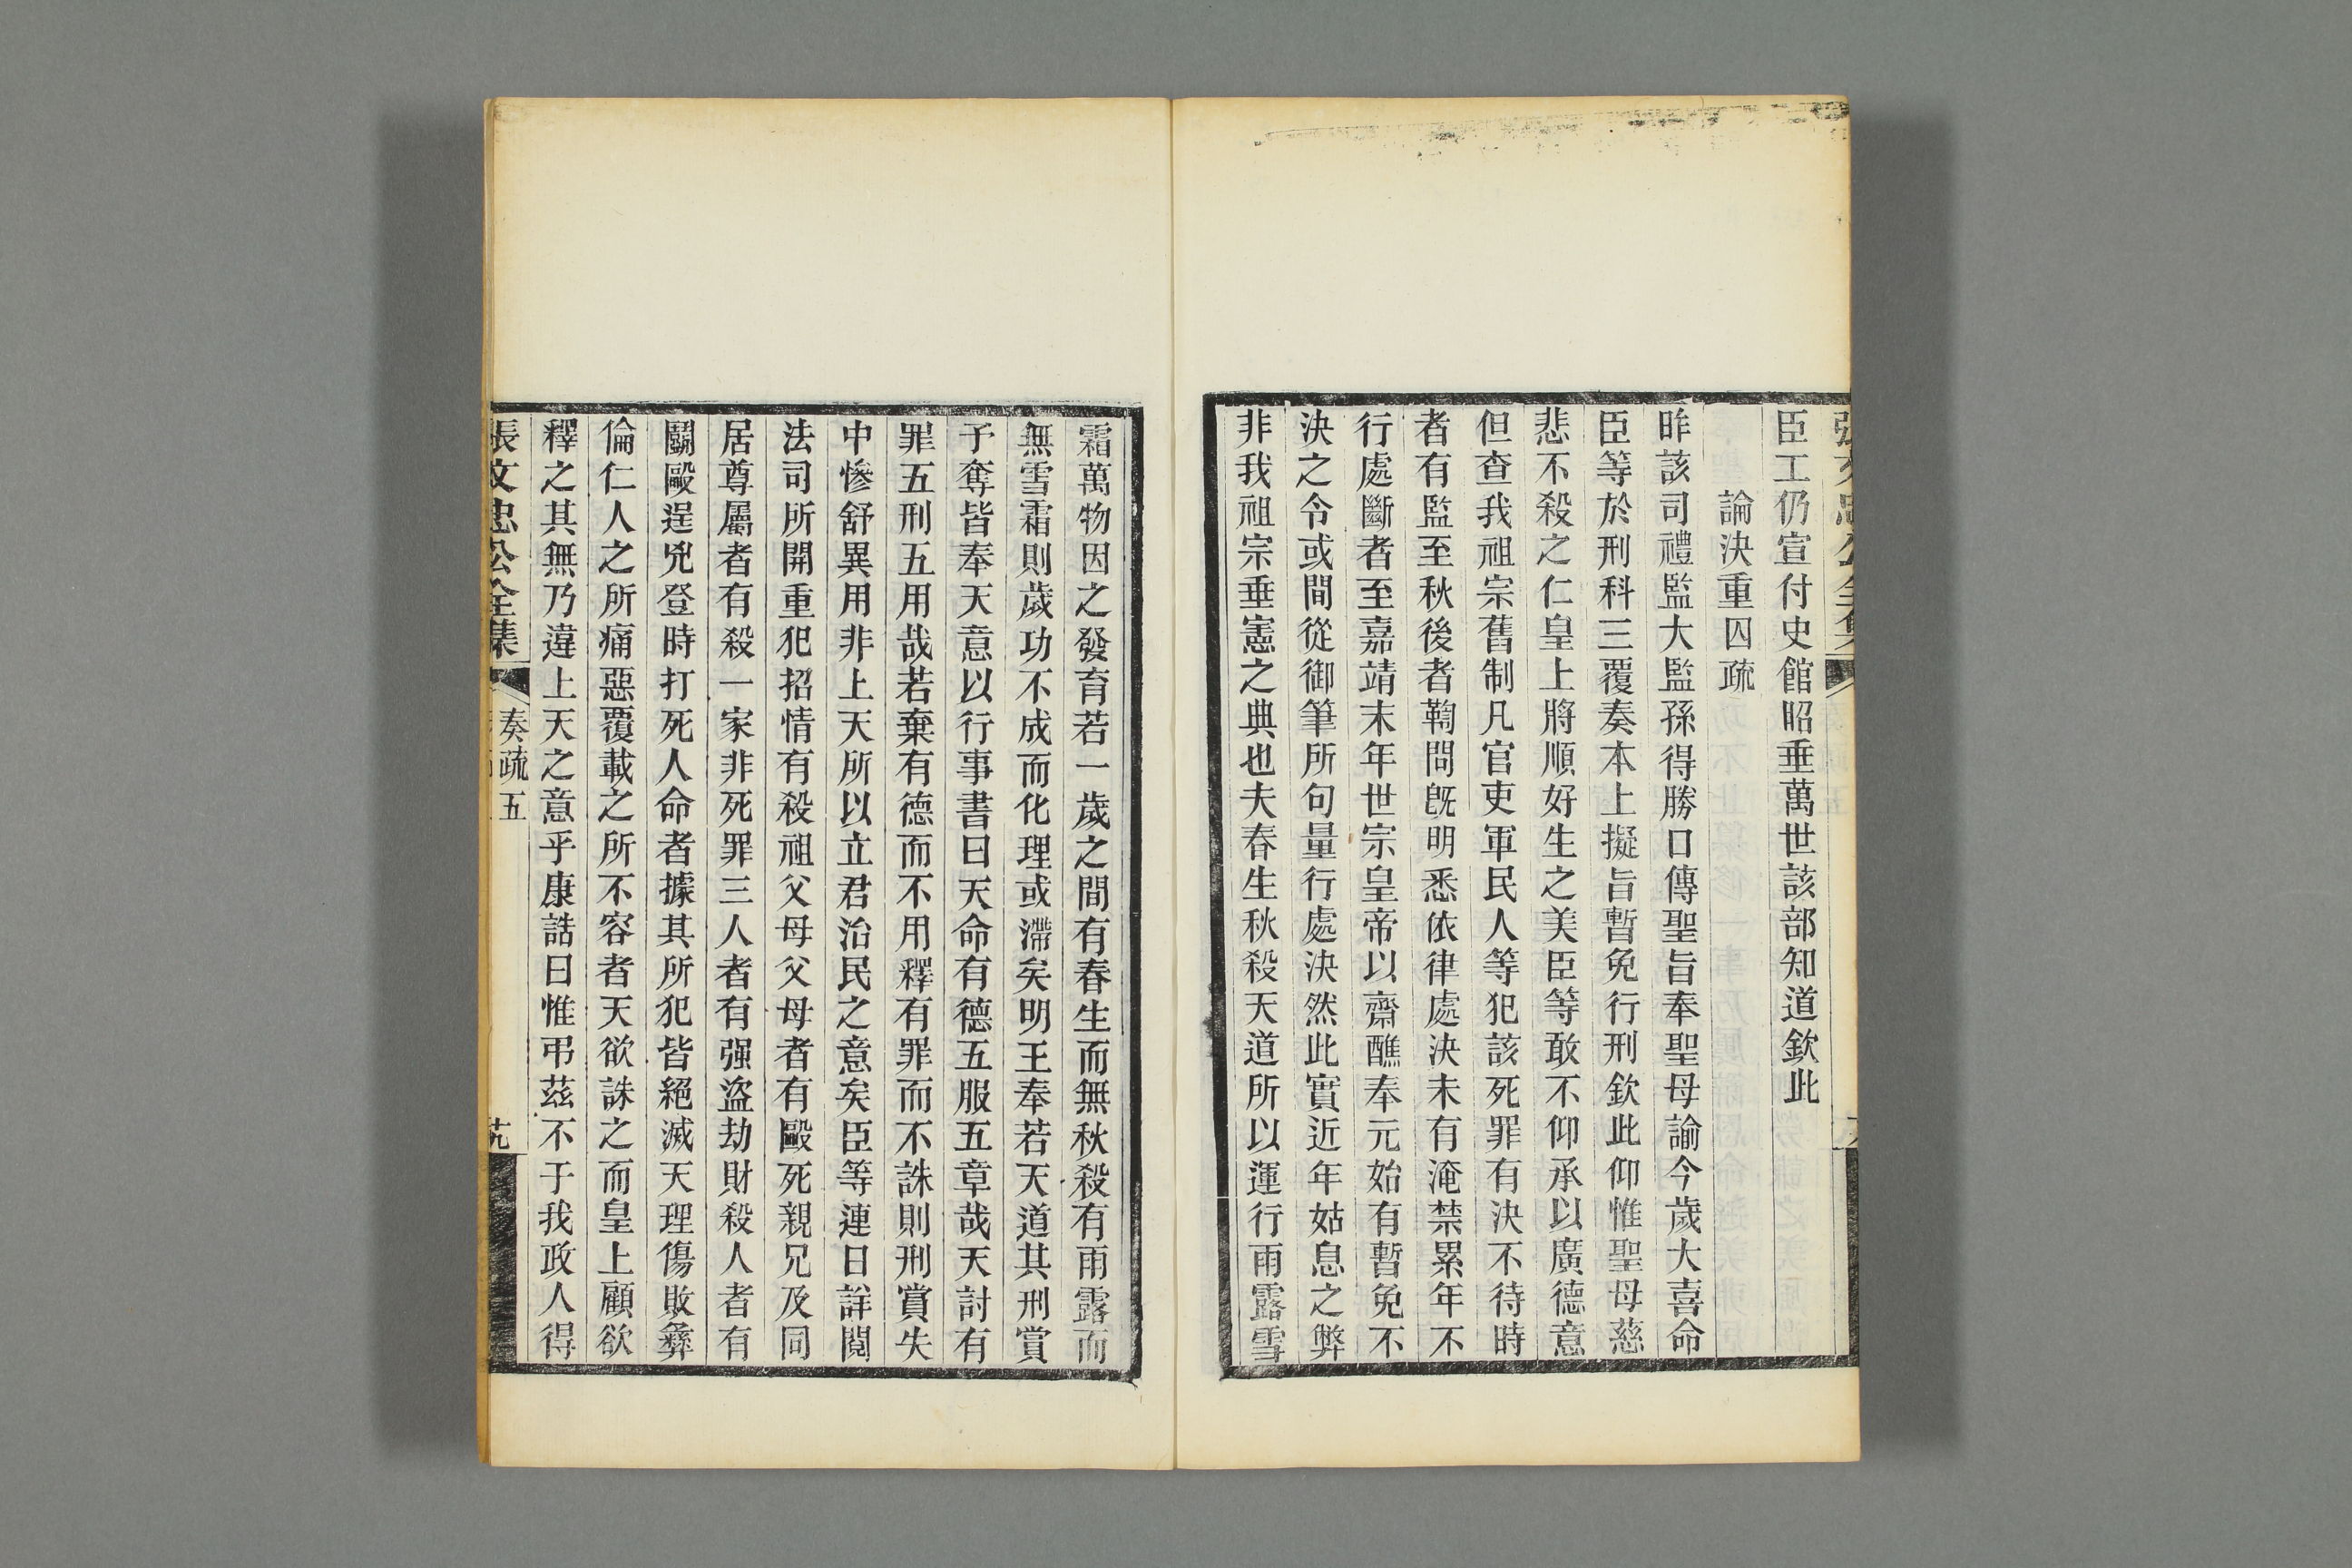 臣工仍宣付史館昭垂萬世該部知道欽此
論決重囚疏
昨該司禮監大監孫得勝口傳聖旨奉聖母諭今歲大喜命
臣等於刑科三覆奏本上擬旨暫免行刑欽此仰惟聖母慈
悲不殺之仁皇上將順好生之美臣等敢不仰承以廣德意
但查我祖宗舊制凡官吏軍民人等犯該死罪有決不待時
者有監至秋後者鞫問既明悉依律處決未有淹禁累年不
行處斷者至嘉靖末年世宗皇帝以齋醮奉元始有暫免不
決之令或間從御筆所句量行處決然此實近年姑息之弊
非我祖宗垂憲之典也夫春生秋殺天道所以運行雨露雪
霜萬物因之發育若一歲之間有春生而無秋殺有雨露而
無雪霜則歲功不成而化理或滯矣明王奉若天道其刑賞
予奪皆奉天意以行事書曰天命有德五服五章哉天討有
罪五刑五用哉若棄有德而不用釋有罪而不誅則刑賞失
中慘舒異用非上天所以立君治民之意矣臣等連日詳閱
法司所開重犯招情有殺祖父母父母者有毆死親兄及同
居尊屬者有殺一家非死罪三人者有强盜劫財殺人者有
鬭毆逞兇登時打死人命者據其所犯皆絕滅天理傷敗彝
倫仁人之所痛惡覆載之所不容者天欲誅之而皇上顧欲
釋之其無乃違上天之意乎康誥曰惟弔茲不于我政人得
張文忠公全集
奏疏五